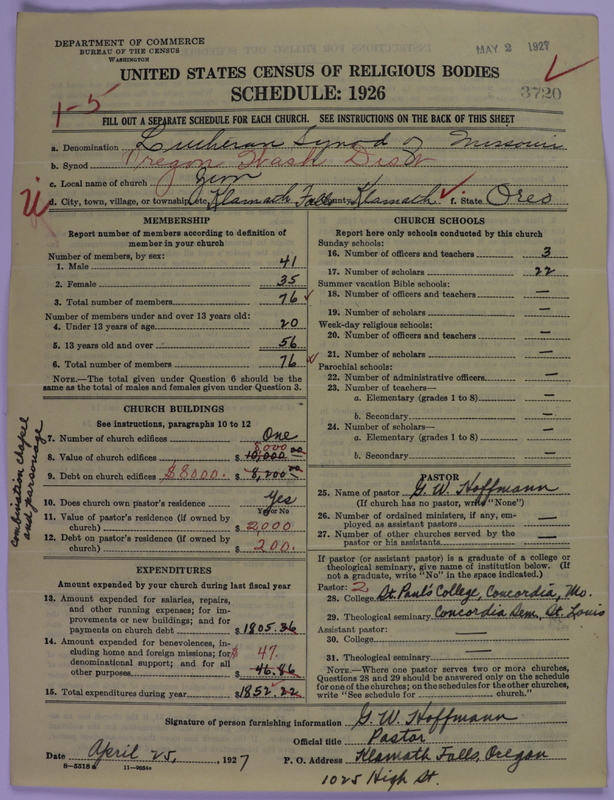 DEPARTMENT OF COMMERCE
BUREAU OF THE CENSUS
WASHINGTON
MAY 2 1927
UNITED STATES CENSUS OF RELIGIOUS BODIES
SCHEDULE: 1926
3720
1-5
FILL OUT A SEPARATE SCHEDULE FOR EACH CHURCH. SEE INSTRUCTIONS ON THE BACK OF THIS SHEET
a. Denomination Lutheran Synod of Missouri
b. Synod Oregon Wash Dist
c. Local name of church
d. City, town, village, or township, etc. Klamath Falls County Klamath f. State Oreg
MEMBERSHIP
Report number of members according to definition of
member in your church
Number of members, by sex:
1. Male 41
2. Female 35
3. Total number of members 76
Number of members under and over 13 years old:
4. Under 13 years of age 20
5. 13 years old and over 56
6. Total number of members 76
NOTE.—The total given under Question 6 should be the
same as the total of males and females given under Question 3.
CHURCH BUILDINGS
See instructions, paragraphs 10 to 12
7. Number of church edifices One
8000
8. Value of church edifices $ 10,000 00
9. Debt on church edifices $8000. $ 8,200 00
10. Does church own pastor's residence Yes
Yes or No
11. Value of pastor's residence (if owned by
church) $ 2,000
12. Debt on pastor's residence (if owned by
church) $ 200.
Combination chapel
and parsonage
EXPENDITURES
Amount expended by your church during last fiscal year
13. Amount expended for salaries, repairs,
and other running expenses; for im-
provements or new buildings; and for
payments on church debt $ 1805.36
14. Amount expended for benevolences, in-
cluding home and foreign missions; for $ 47.
denominational support; and for all
other purposes $ 46.86
15. Total expenditures during year $ 1852.22
CHURCH SCHOOLS
Report here only schools conducted by this church
Sunday schools:
16. Number of officers and teachers 3
17. Number of scholars 22
Summer vacation Bible schools:
18. Number of officers and teachers —
19. Number of scholars —
Week-day religious schools:
20. Number of officers and teachers —
21. Number of scholars —
Parochial schools:
22. Number of administrative officers —
23. Number of teachers—
a. Elementary (grades 1 to 8) —
b. Secondary —
24. Number of scholars—
a. Elementary (grades 1 to 8) —
b. Secondary —
PASTOR
25. Name of pastor G. W. Hoffmann
(If church has no pastor, write "None")
26. Number of ordained ministers, if any, em-
ployed as assistant pastors —
27. Number of other churches served by the
pastor or his assistants —
If pastor (or assistant pastor) is a graduate of a college or
theological seminary, give name of institution below. (If
not a graduate, write "No" in the space indicated.)
Pastor: 2
28. College St. Paul's College, Concordia, Mo.
29. Theological seminary Concordia Sem., St. Louis
Assistant pastor:
30. College —
31. Theological seminary —
NOTE.—Where one pastor serves two or more churches,
Questions 28 and 29 should be answered only on the schedule
for one of the churches; on the schedules for the other churches,
write "See schedule for church."
Signature of person furnishing information G. W. Hoffmann
Official title Pastor
Date April 25, 1927 P. O. Address Klamath Falls, Oregon
1025 High St.